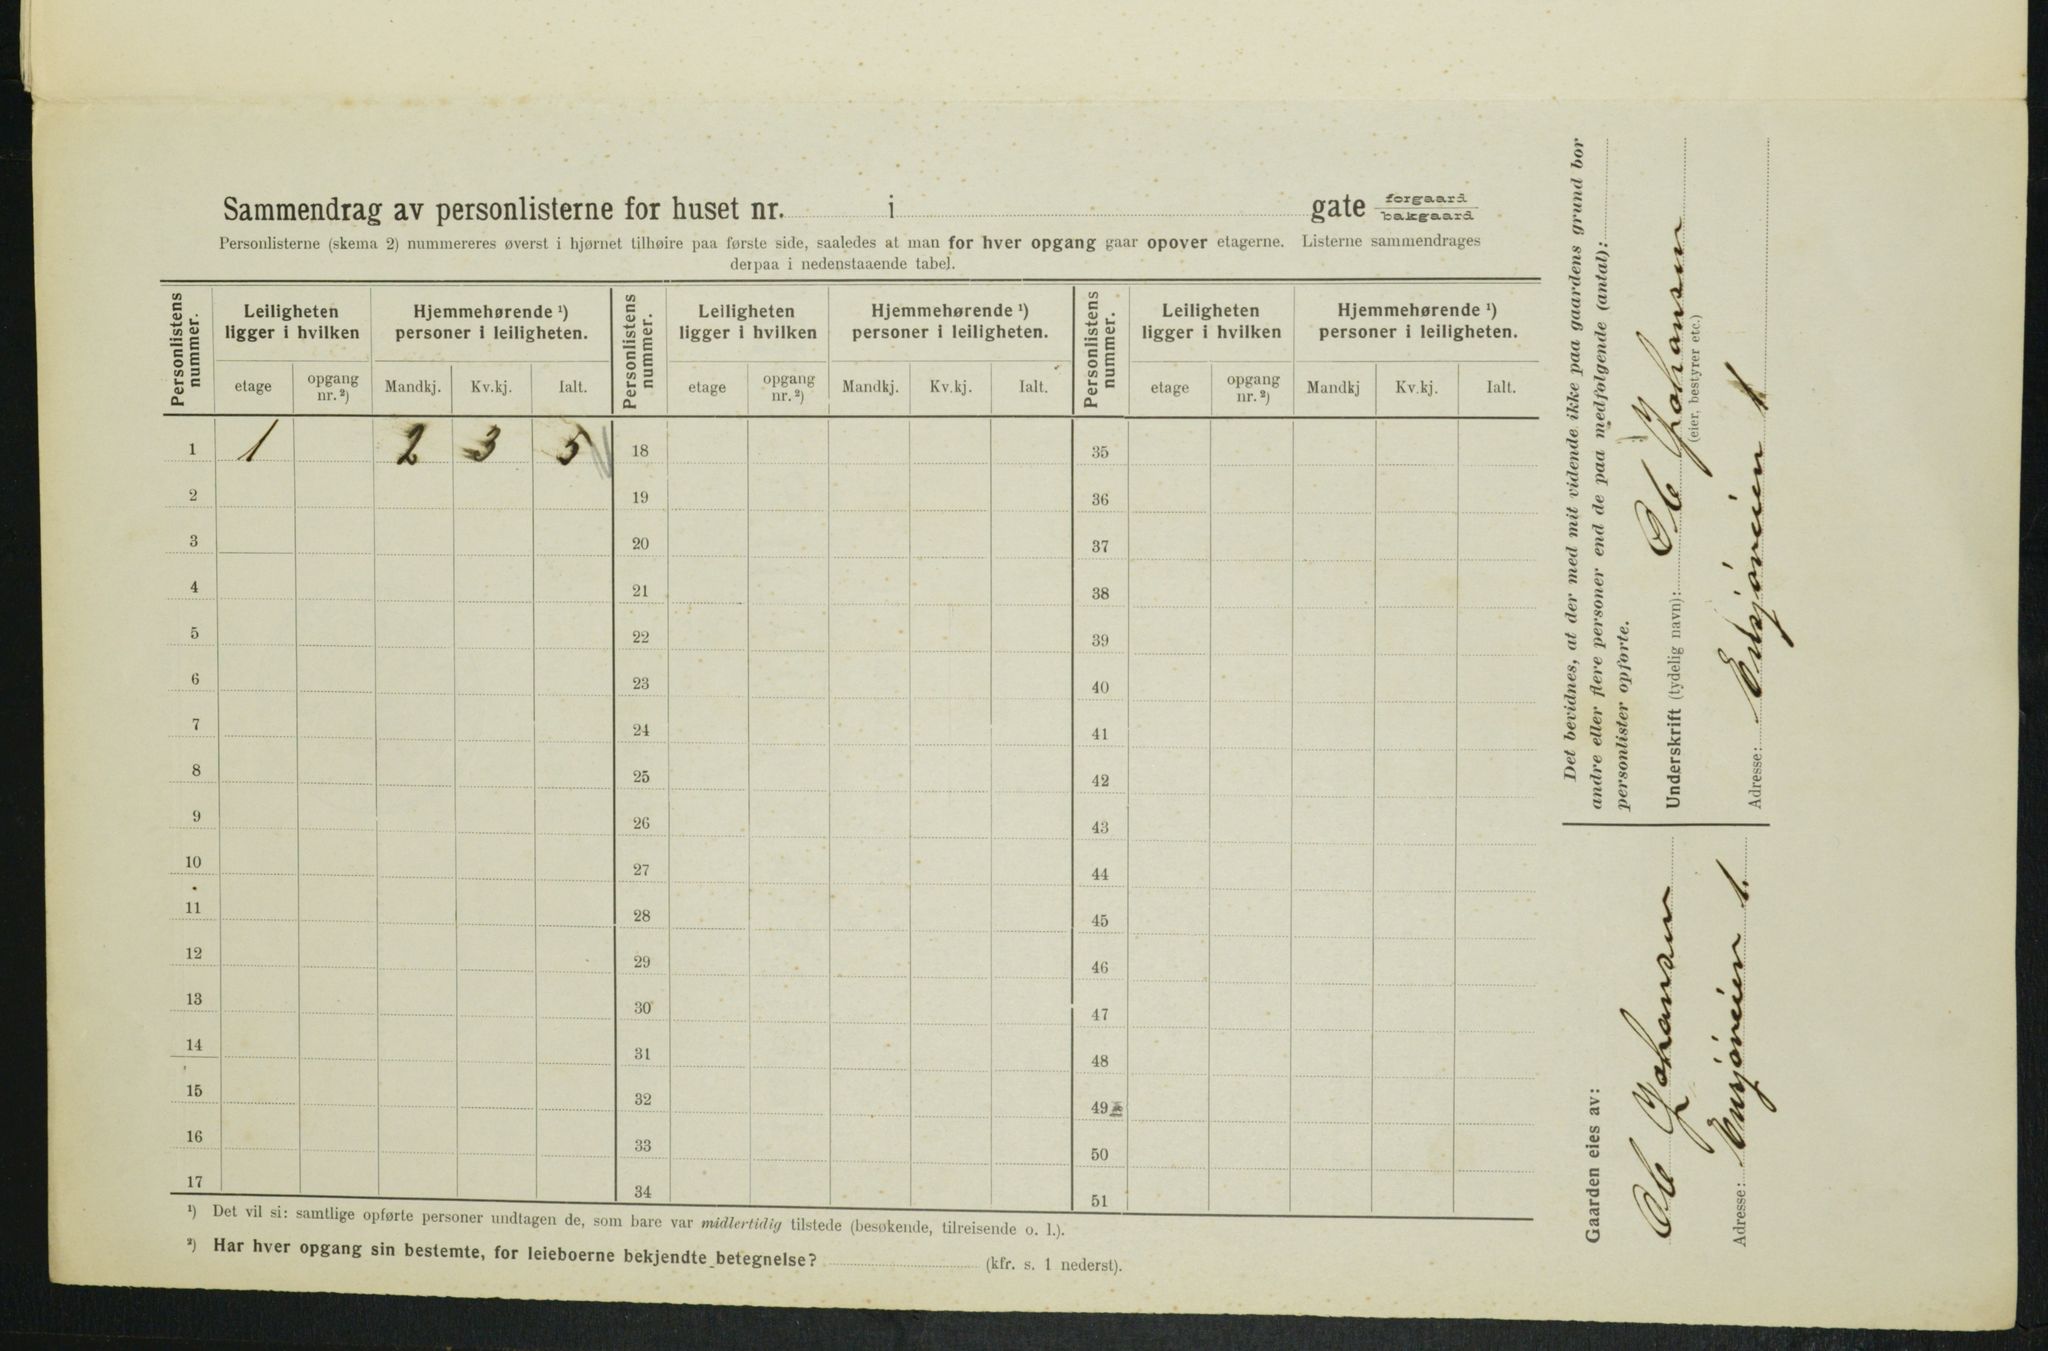 Sammendrag av personlisterne for huset nr. i gate forgaard bakgaard
Personlisterne (skema 2) nummereres øverst i hjørnet tilhøire paa første side, saaledes at man for hver opgang gaar opover etagerne. Listerne sammendrages
derpaa i nedenstaaende tabel.
Personlistens nummer. Leiligheten ligger i hvilken Hjemmehørende ¹) personer i leiligheten. Personlistens nummer. Leiligheten ligger i hvilken Hjemmehørende ¹) personer i leiligheten. Personlistens nummer. Leiligheten ligger i hvilken Hjemmehørende ¹) personer i leiligheten.
etage opgang nr. ²) Mandkj. Kv.kj. Ialt. etage opgang nr. ²) Mandkj. Kv.kj. Ialt. etage opgang nr. ²) Mandkj Kv.kj. Ialt.
1 1 2 3 5 18 35
2 19 36
3 20 37
4 21 38
5 22 39
6 23 40
7 24 41
8 25 42
9 26 43
10 27 44
11 28 45
12 29 46
13 30 47
14 31 48
15 32 49
16 33 50
17 34 51
¹) Det vil si: samtlige opførte personer undtagen de, som bare var midlertidig tilstede (besøkende, tilreisende o. l.).
²) Har hver opgang sin bestemte, for leieboerne bekjendte betegnelse? (kfr. s. 1 nederst).
Det bevidnes, at der med mit vidende ikke paa gaardens grund bor
andre eller flere personer end de paa medfølgende (antal):
personlister opførte.
Underskrift (tydelig navn): Johansen
(eier, bestyrer etc.)
Adresse: Ensjöveien 1
Gaarden eies av:
Johansen
Adresse: Ensjöveien 1.